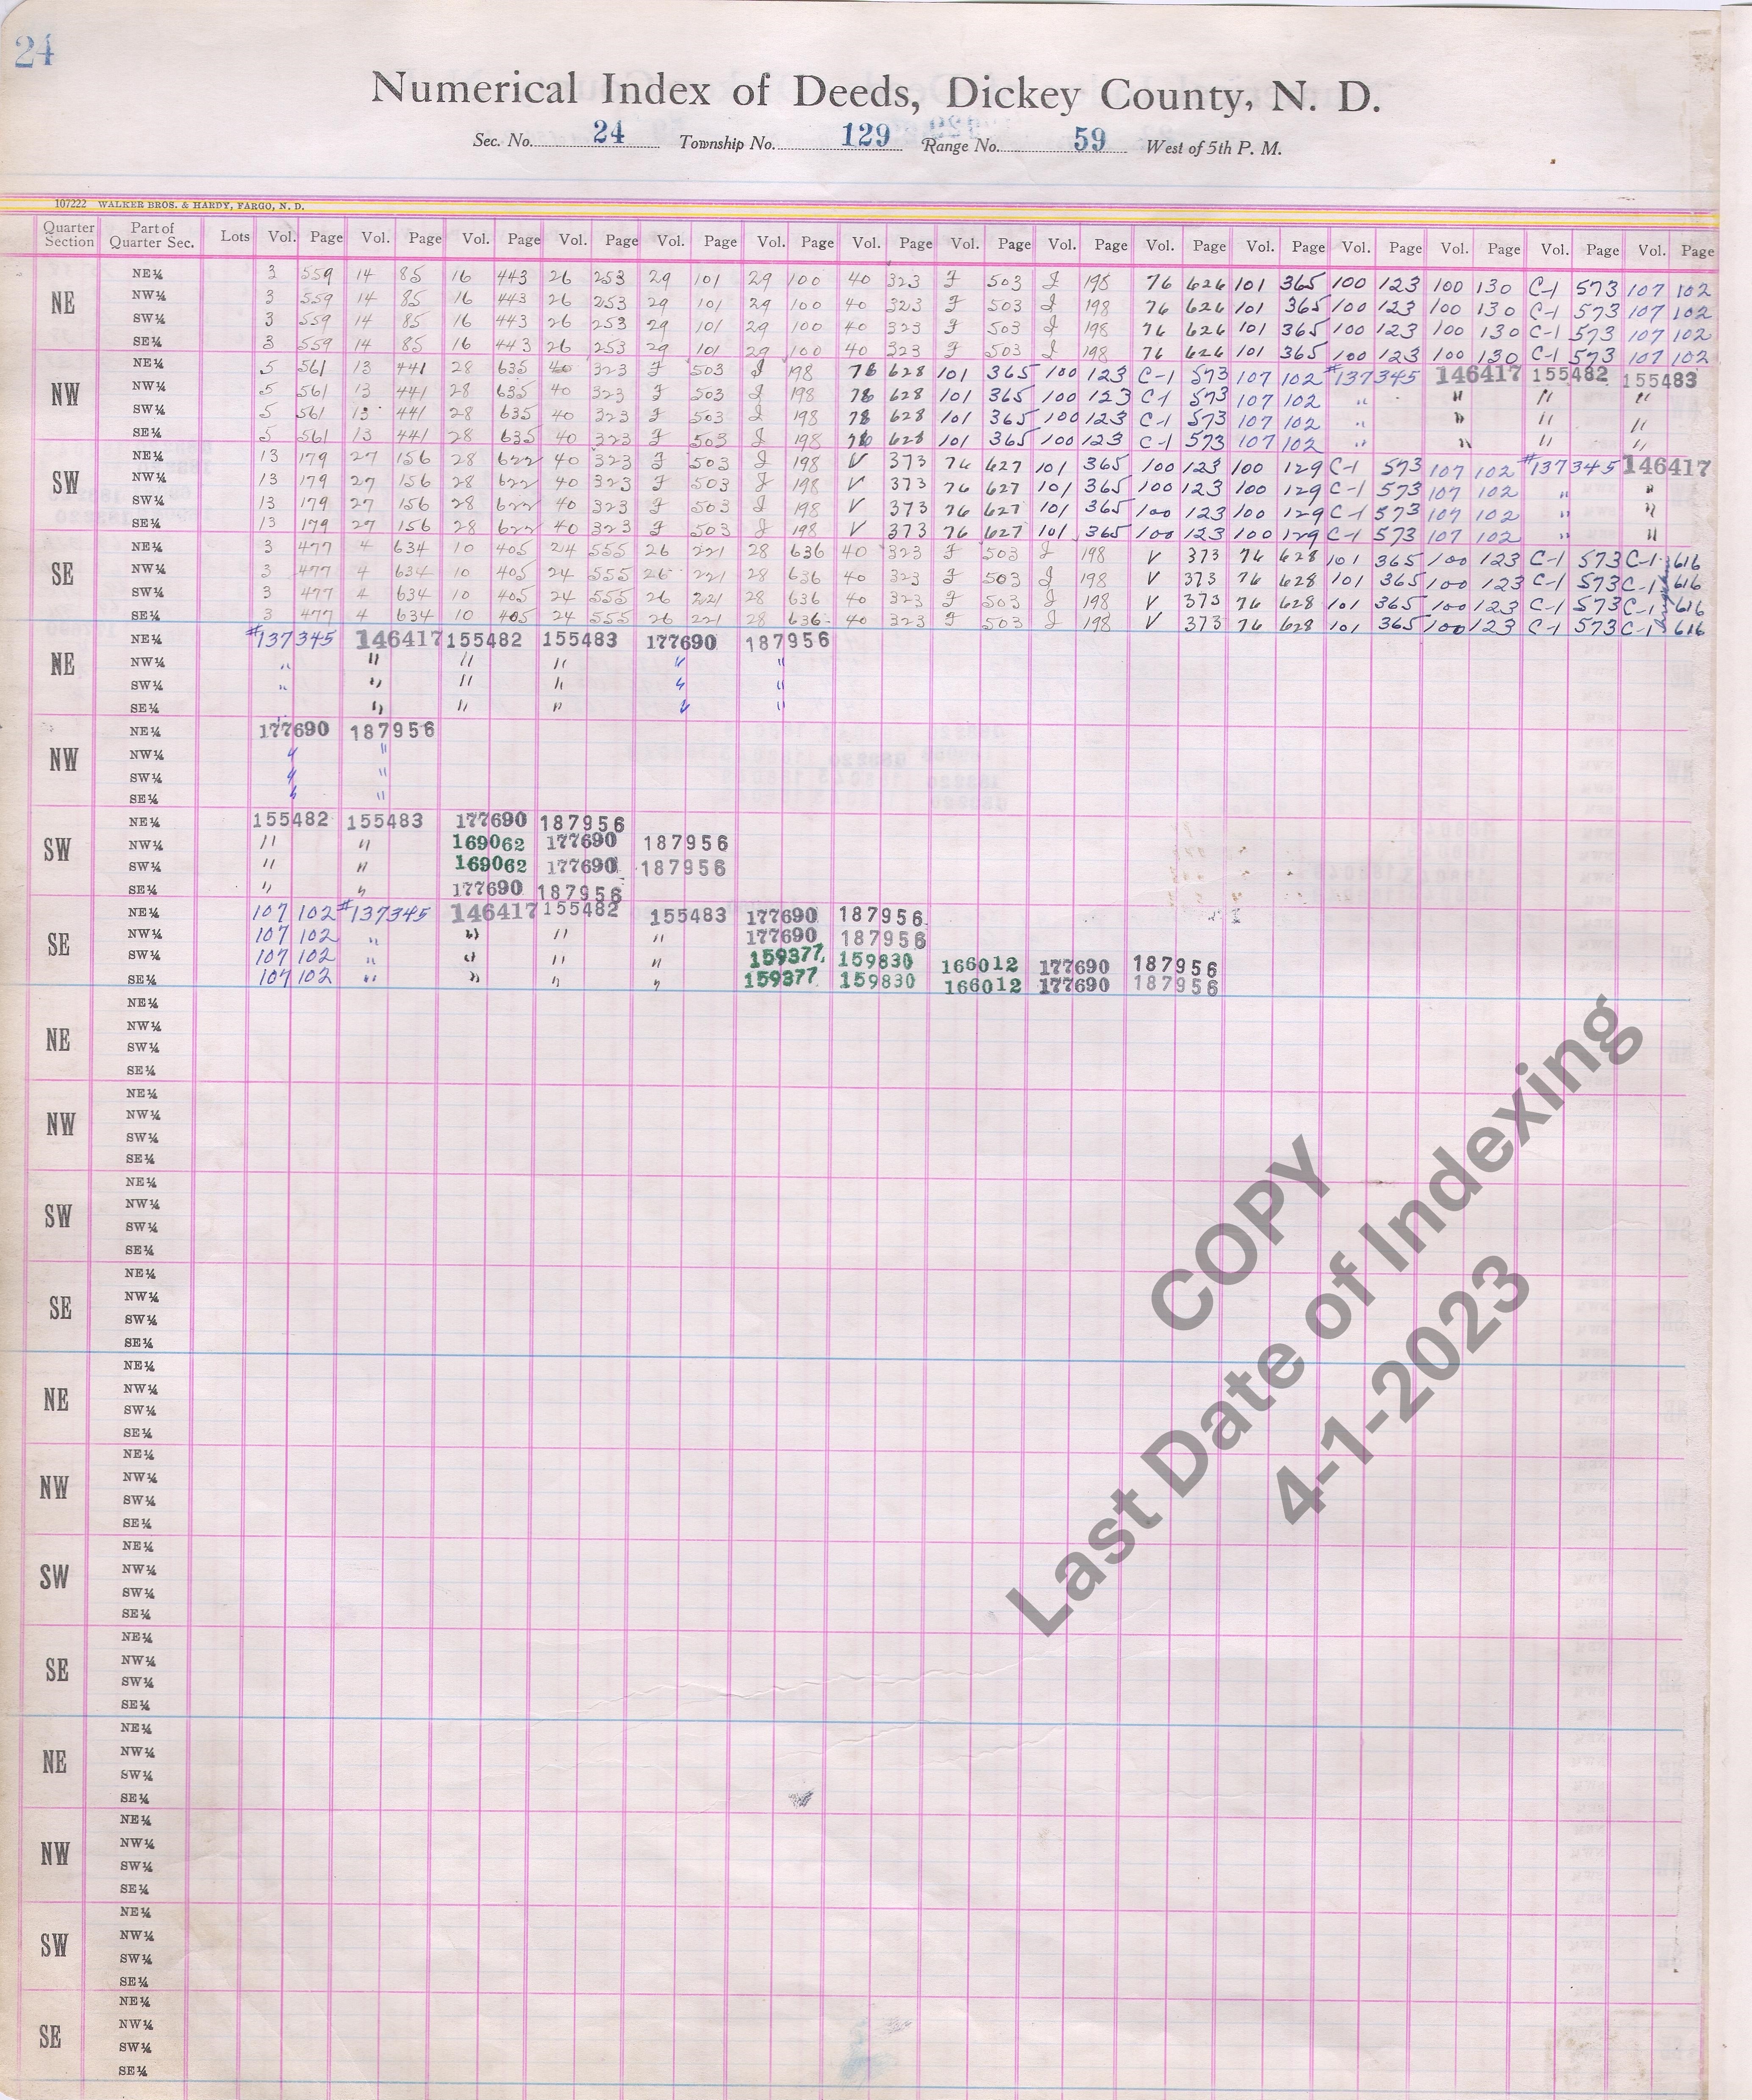 24
Numerical Index of Deeds, Dickey County, N. D.
Sec. No. 24 Township No. 129 Range No. 59 West of 5th P. M.
107222 WALKER BROS. & HARDY, FARGO, N. D.
Quarter Section Part of Quarter Sec. Lots Vol. Page Vol. Page Vol. Page Vol. Page Vol. Page Vol. Page Vol. Page Vol. Page Vol. Page Vol. Page Vol. Page Vol. Page Vol. Page Vol. Page Vol. Page
NE
NE¼ 3 559 14 85 16 443 26 253 29 101 29 100 40 323 J 503 J 198 76 626 101 365 100 123 100 130 C-1 573 107 102
NW¼ 3 559 14 85 16 443 26 253 29 101 29 100 40 323 J 503 J 198 76 626 101 365 100 123 100 130 C-1 573 107 102
SW¼ 3 559 14 85 16 443 26 253 29 101 29 100 40 323 J 503 J 198 76 626 101 365 100 123 100 130 C-1 573 107 102
SE¼ 3 559 14 85 16 443 26 253 29 101 29 100 40 323 J 503 J 198 76 626 101 365 100 123 100 130 C-1 573 107 102
NW
NE¼ 5 561 13 441 28 635 40 323 J 503 J 198 76 628 101 365 100 123 C-1 573 107 102 #137345 146417 155482 155483
NW¼ 5 561 13 441 28 635 40 323 J 503 J 198 76 628 101 365 100 123 C-1 573 107 102 " " " "
SW¼ 5 561 13 441 28 635 40 323 J 503 J 198 76 628 101 365 100 123 C-1 573 107 102 " " " "
SE¼ 5 561 13 441 28 635 40 323 J 503 J 198 76 628 101 365 100 123 C-1 573 107 102 " " " "
SW
NE¼ 13 179 27 156 28 622 40 323 J 503 J 198 V 373 76 627 101 365 100 123 100 129 C-1 573 107 102 #137345 146417
NW¼ 13 179 27 156 28 622 40 323 J 503 J 198 V 373 76 627 101 365 100 123 100 129 C-1 573 107 102 " "
SW¼ 13 179 27 156 28 622 40 323 J 503 J 198 V 373 76 627 101 365 100 123 100 129 C-1 573 107 102 " "
SE¼ 13 179 27 156 28 622 40 323 J 503 J 198 V 373 76 627 101 365 100 123 100 129 C-1 573 107 102 " "
SE
NE¼ 3 477 4 634 10 405 24 555 26 221 28 636 40 323 J 503 J 198 V 373 76 628 101 365 100 123 C-1 573 C-1 616
NW¼ 3 477 4 634 10 405 24 555 26 221 28 636 40 323 J 503 J 198 V 373 76 628 101 365 100 123 C-1 573 C-1 616
SW¼ 3 477 4 634 10 405 24 555 26 221 28 636 40 323 J 503 J 198 V 373 76 628 101 365 100 123 C-1 573 C-1 616
SE¼ 3 477 4 634 10 405 24 555 26 221 28 636 40 323 J 503 J 198 V 373 76 628 101 365 100 123 C-1 573 C-1 616
NE
NE¼ #137345 146417 155482 155483 177690 187956
NW¼ " " " " " "
SW¼ " " " " " "
SE¼ " " " " "
NW
NE¼ 177690 187956
NW¼ " "
SW¼ " "
SE¼ " "
SW
NE¼ 155482 155483 177690 187956
NW¼ " " 169062 177690 187956
SW¼ " " 169062 177690 187956
SE¼ " " 177690 187956
SE
NE¼ 107 102 #137345 146417 155482 155483 177690 187956
NW¼ 107 102 " " " " 177690 187956
SW¼ 107 102 " " " " 159377 159830 166012 177690 187956
SE¼ 107 102 " " " " 159377 159830 166012 177690 187956
NE
NE¼
NW¼
SW¼
SE¼
NW
NE¼
NW¼
SW¼
SE¼
SW
NE¼
NW¼
SW¼
SE¼
SE
NE¼
NW¼
SW¼
SE¼
NE
NE¼
NW¼
SW¼
SE¼
NW
NE¼
NW¼
SW¼
SE¼
SW
NE¼
NW¼
SW¼
SE¼
SE
NE¼
NW¼
SW¼
SE¼
NE
NE¼
NW¼
SW¼
SE¼
NW
NE¼
NW¼
SW¼
SE¼
SW
NE¼
NW¼
SW¼
SE¼
SE
NE¼
NW¼
SW¼
SE¼
COPY
Last Date of Indexing
4-1-2023